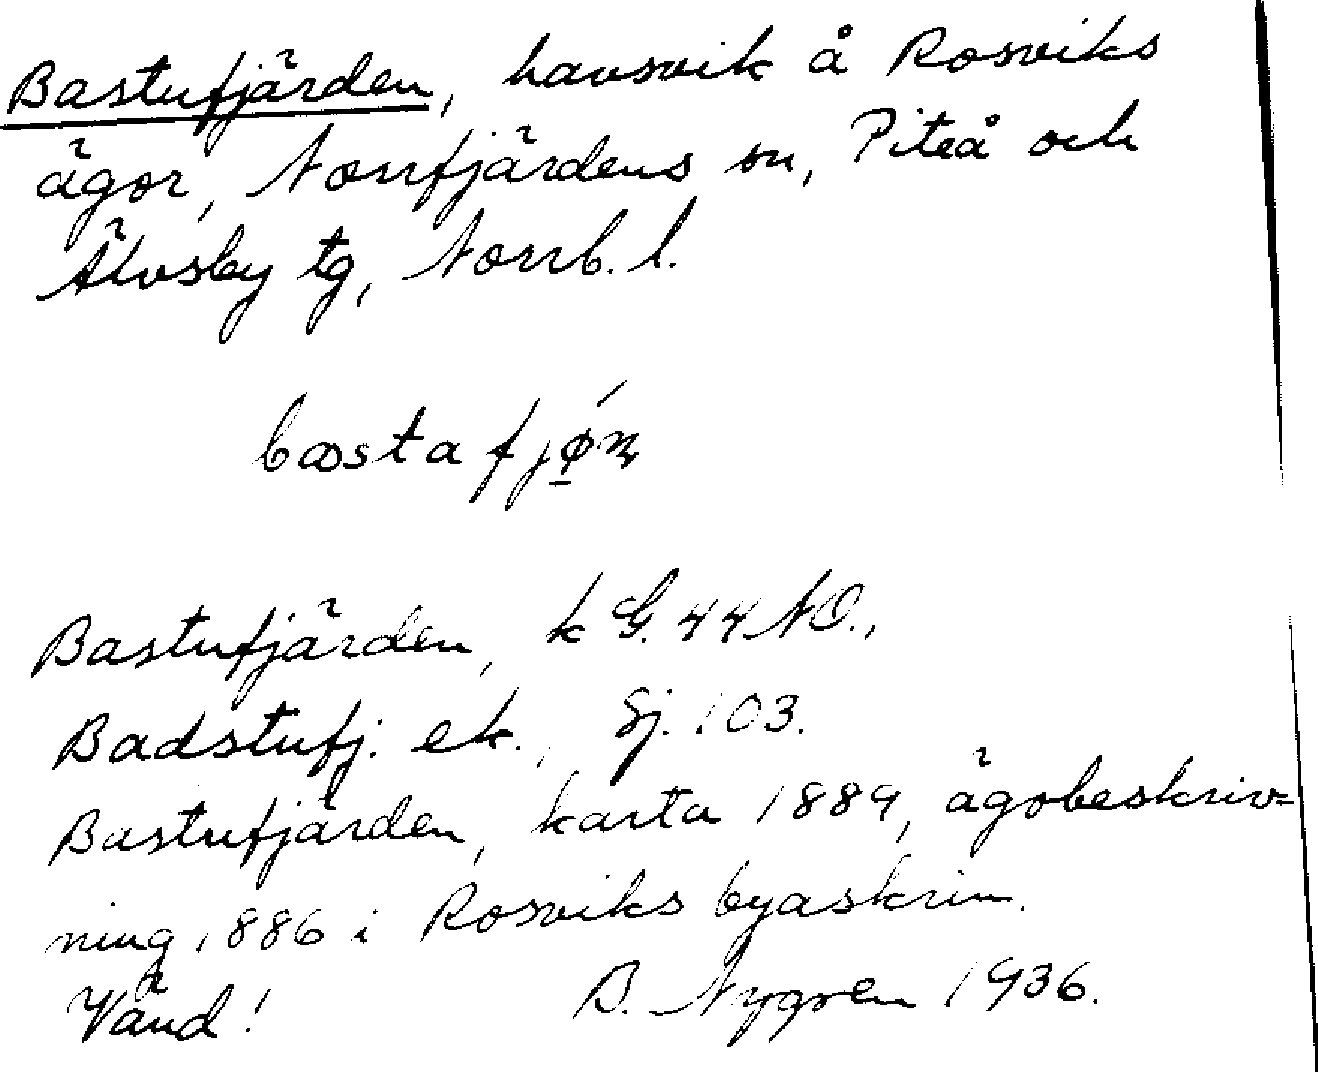 Bastufjärden, havsvik å Rosviks
ägor, Norrfjärdens sn, Piteå och
Älvsby tg, Norrb. l.
Bastufjärden, k G. 44 NO.,
Badstufj. ek., Sj. 103.
Bastufjärden, karta 1889, ägobeskriv-
ning 1886 i Rosviks byaskrin.
Vänd! B. Nygren 1936.